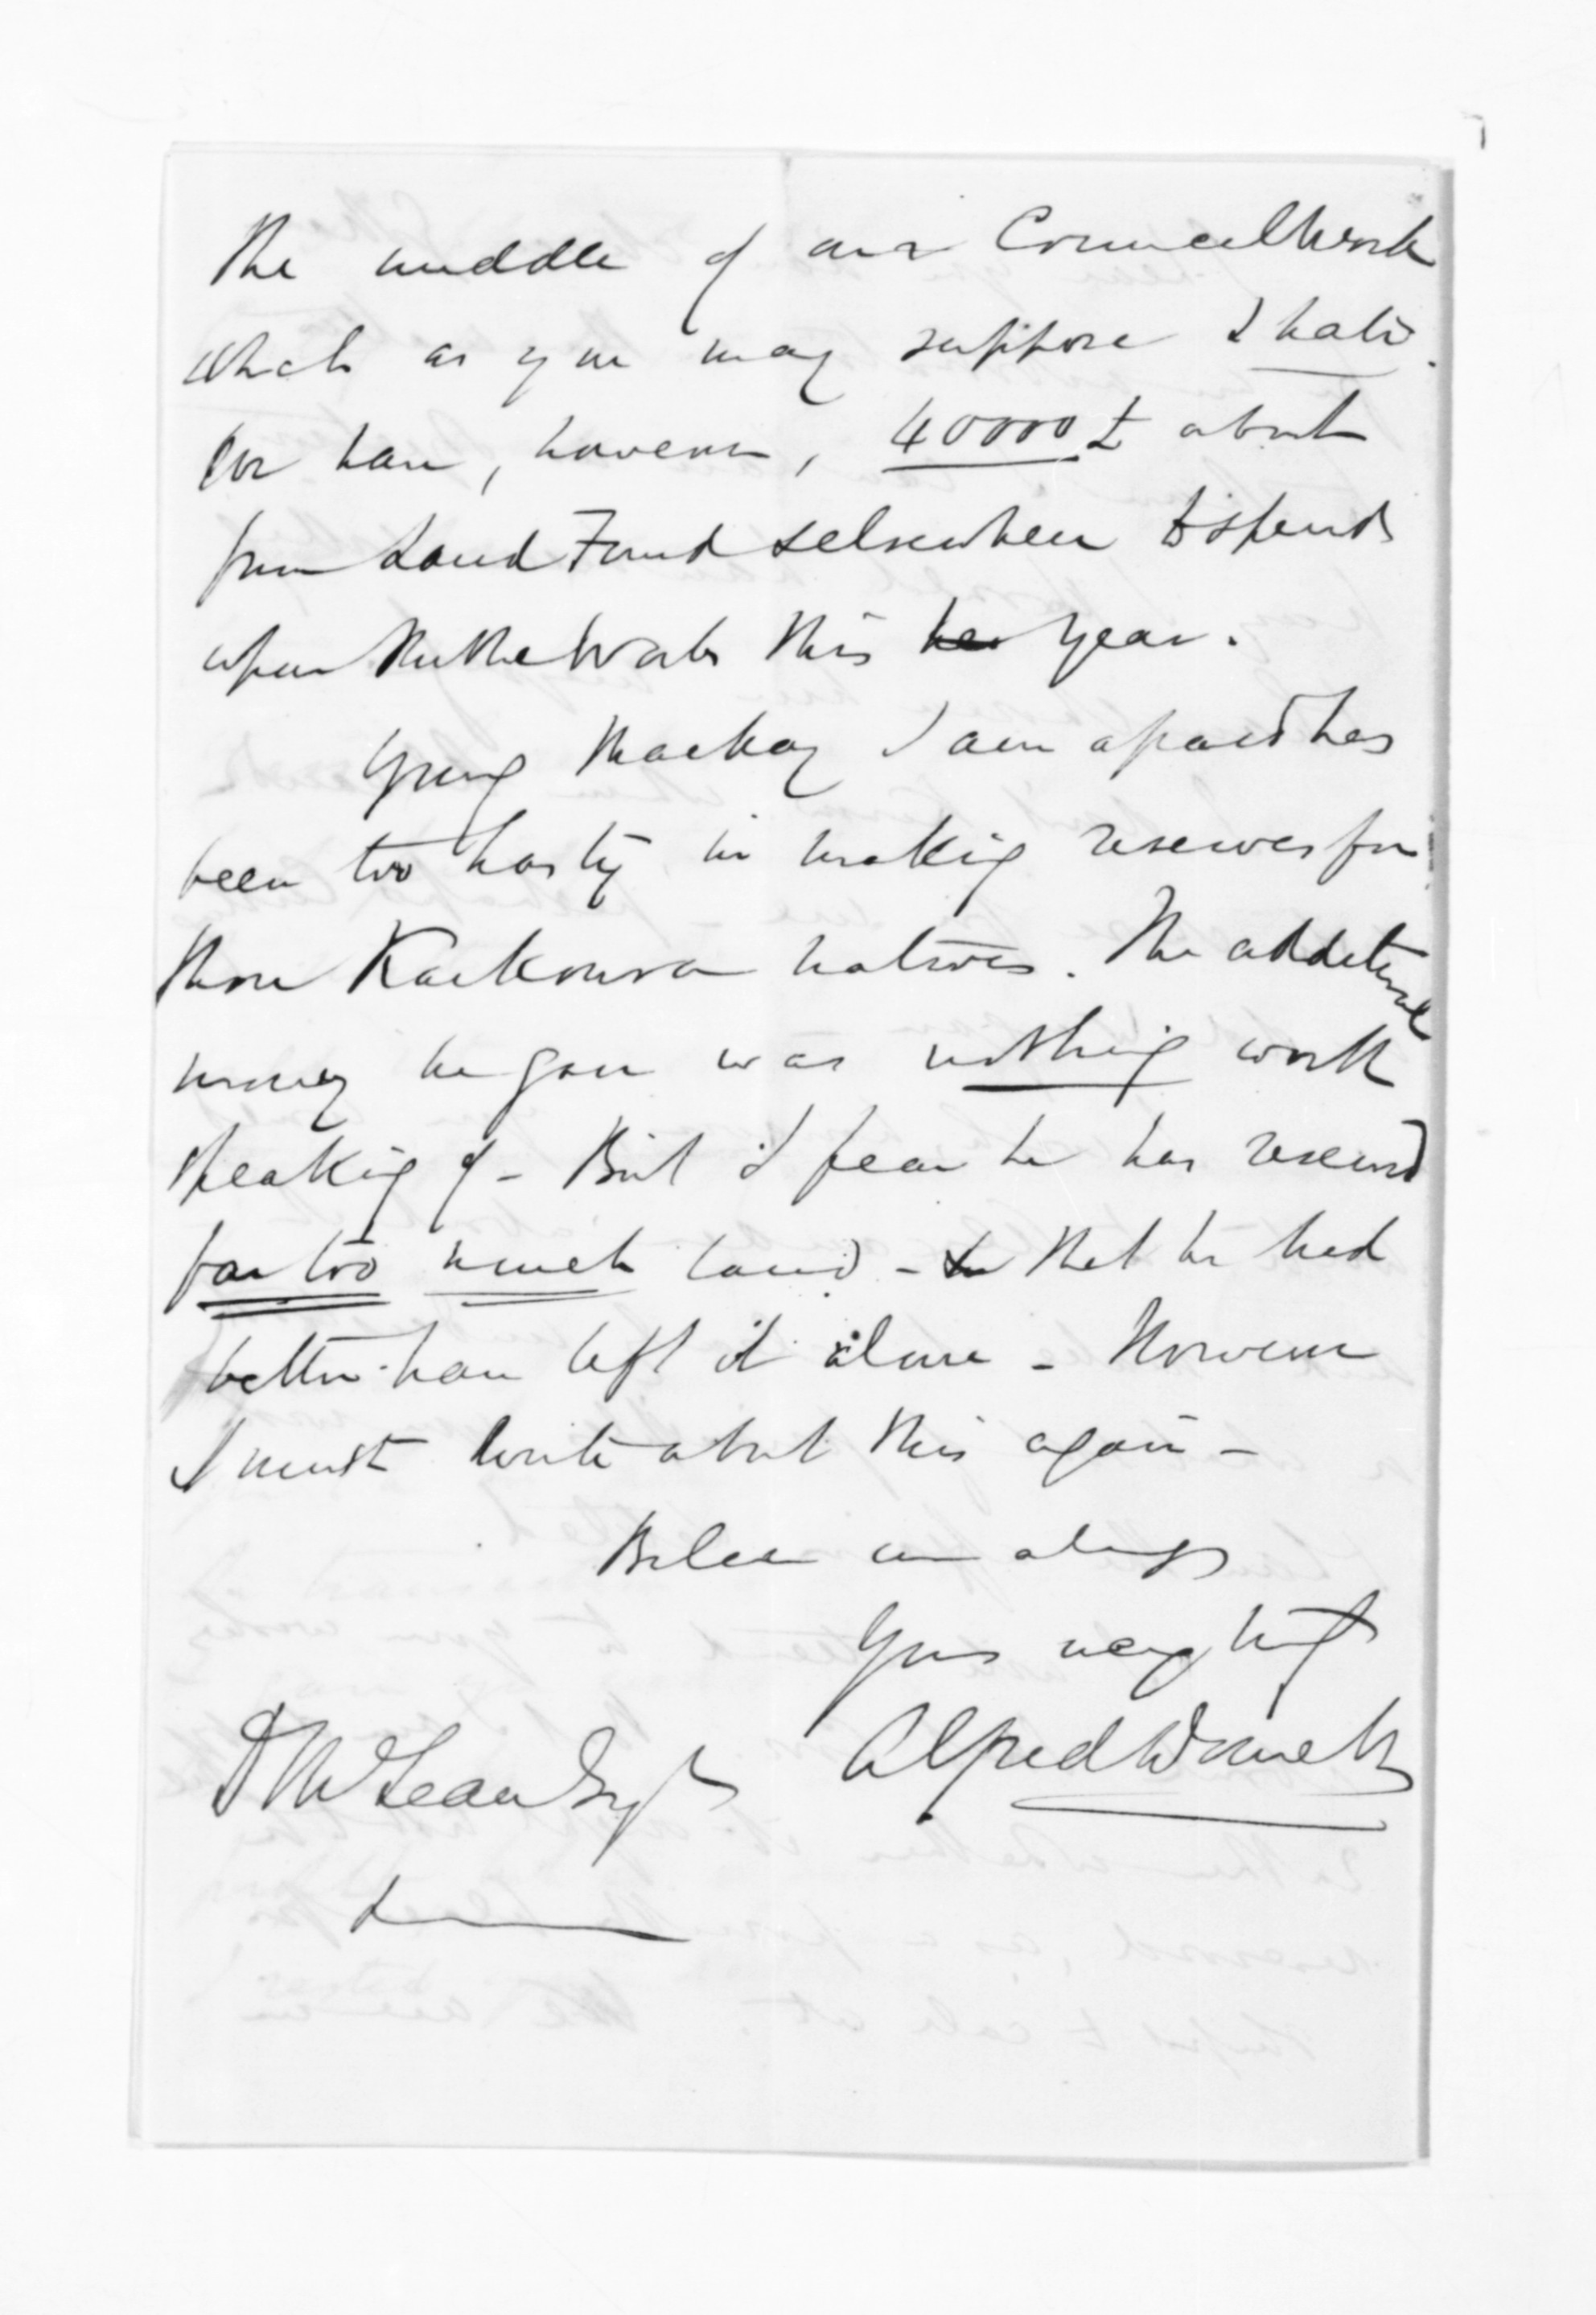 the middle of our Council work
which as you may suppose I hate.
We have, however, 40000£ about
from Land Fund & elsewhere to spend
upon Public Works this year.
Young Mackay I am afraid has
been too hasty in making reserves for
those Kaikoura natives. The additional
money he gave was nothing worth
speaking of - But I fear he has reserved
far too much land - that he had
better have left it alone - However
I must write about this again -
Believe me always
Yours very truly
Alfred Domett
D McLean Esqr